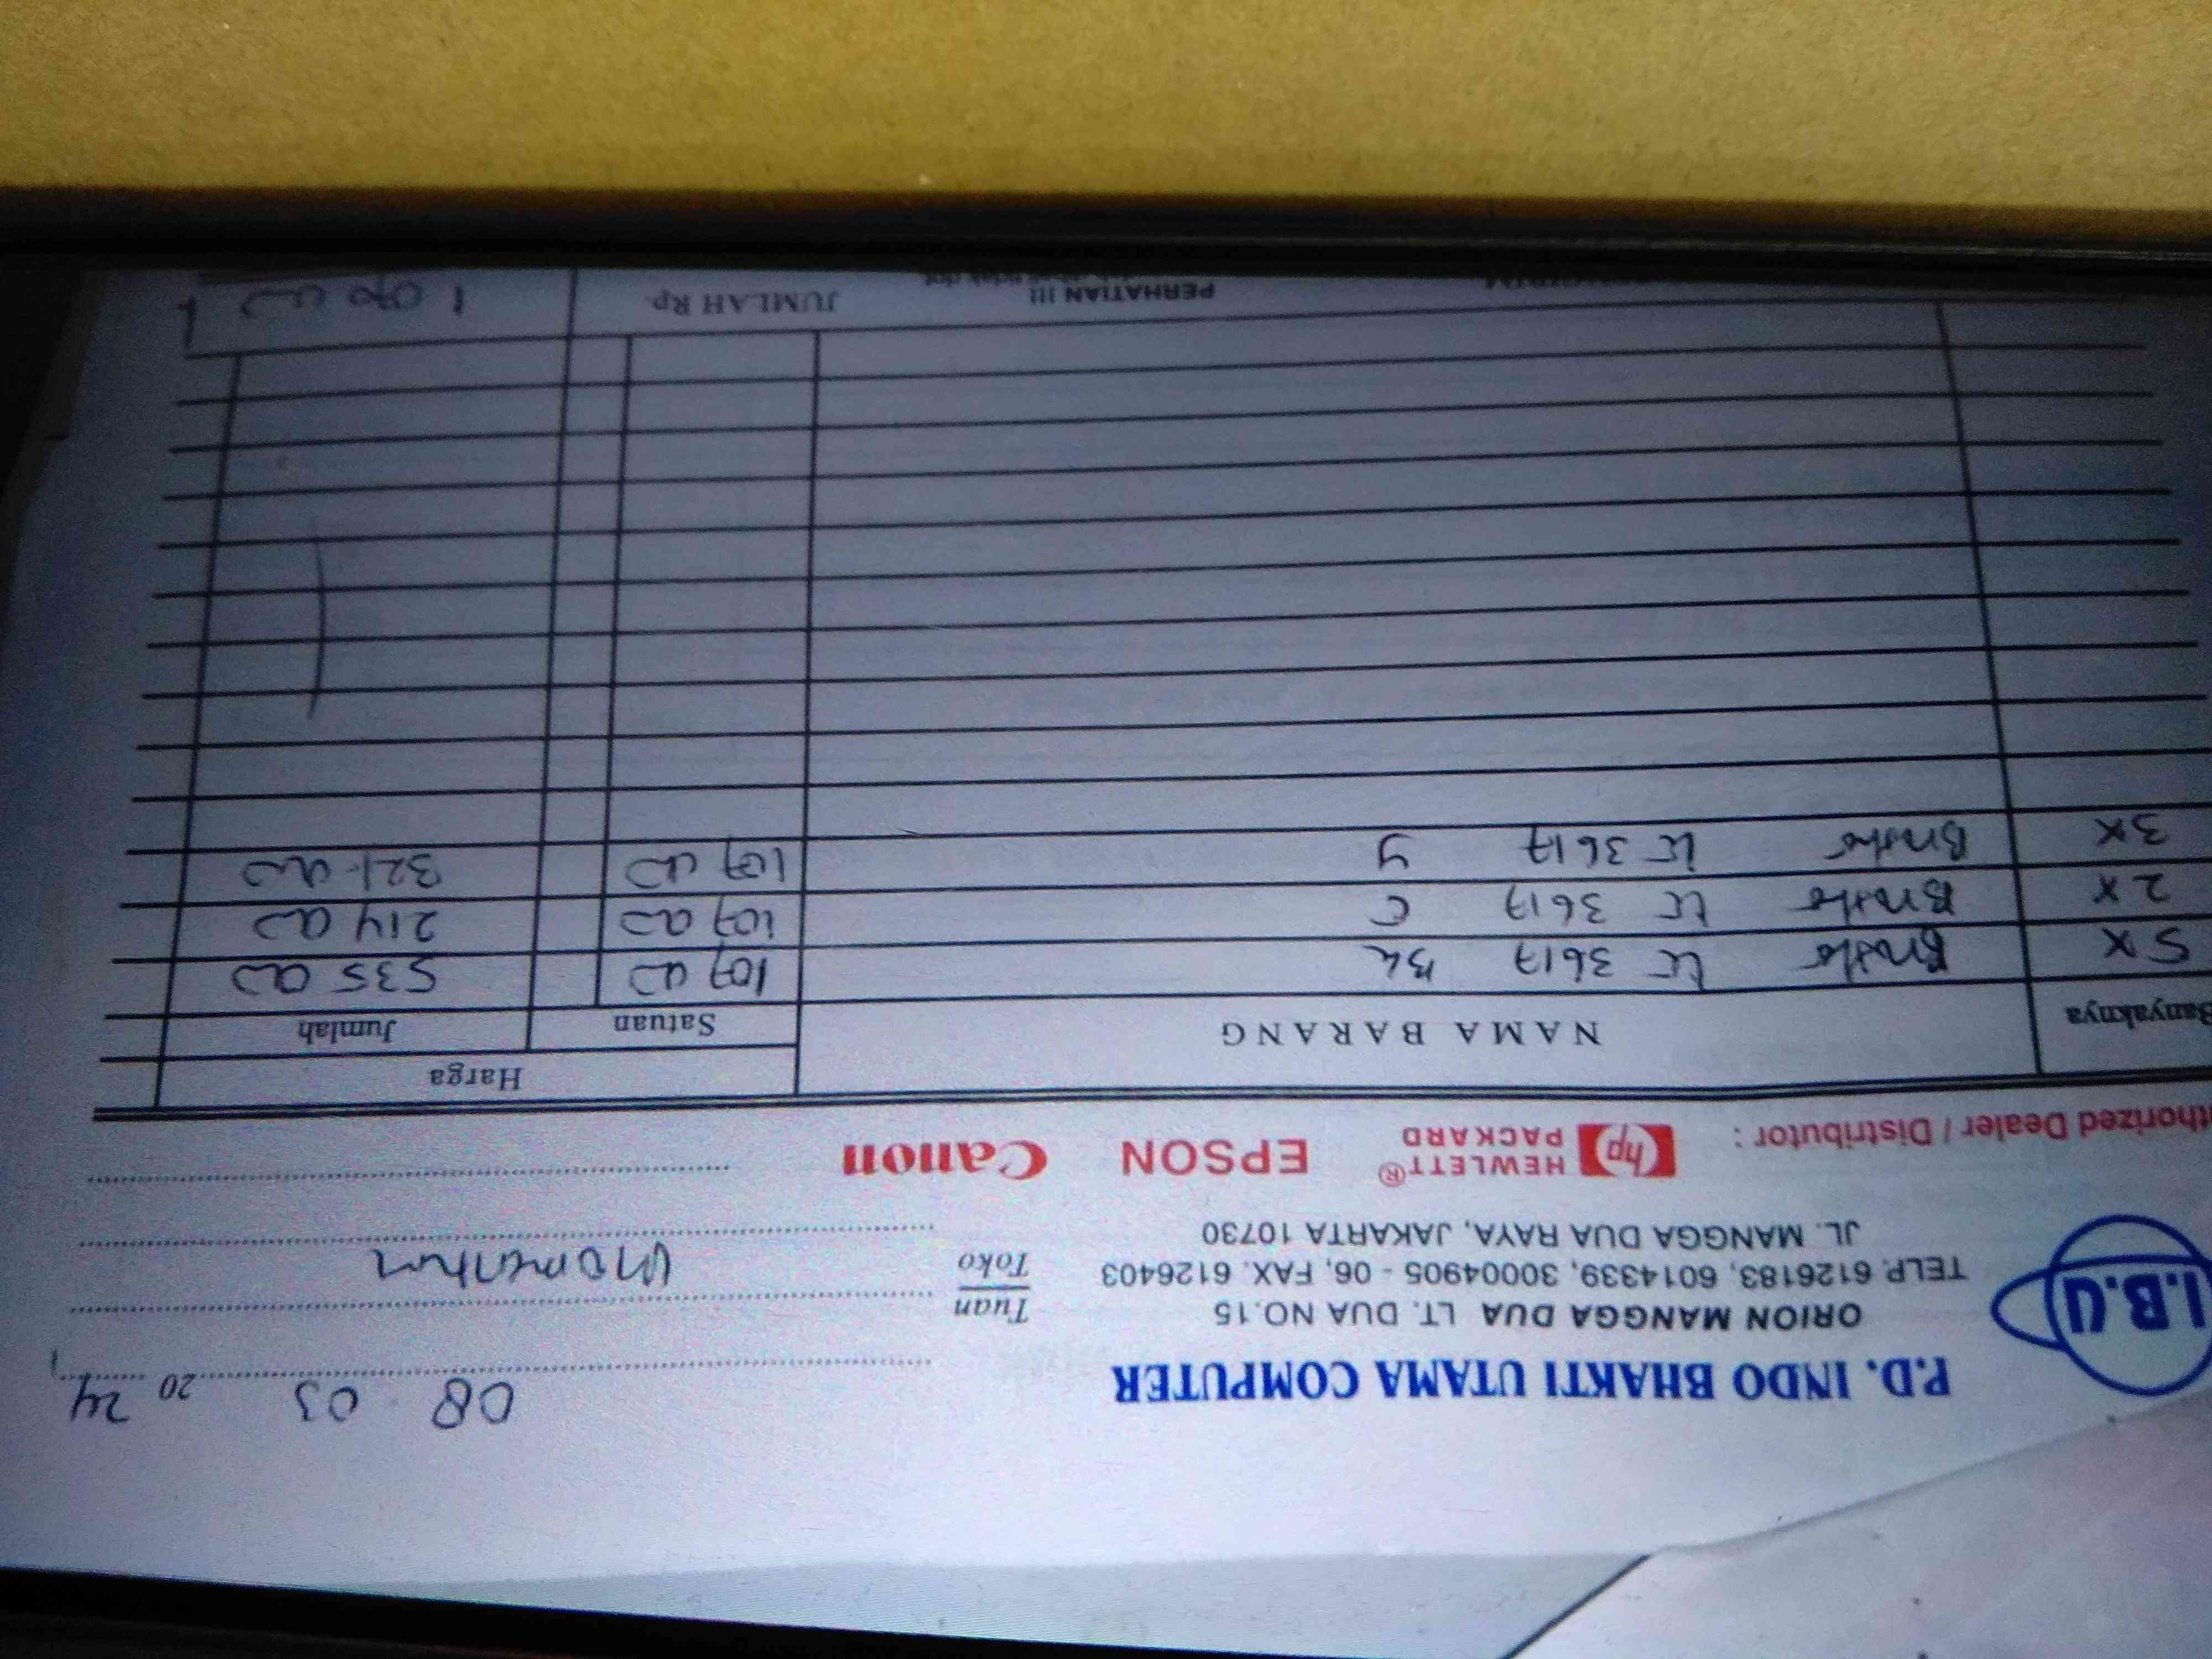 I.B.U
P.D. INDO BHAKTI UTAMA COMPUTER
ORION MANGGA DUA LT. DUA NO.15
TELP. 6126183, 6014339, 30004905 - 06, FAX. 6126403
JL. MANGGA DUA RAYA, JAKARTA 10730
08 03 20 24
Tuan
Toko
Momentum
thorized Dealer / Distributor : hp HEWLETT® PACKARD EPSON Canon
Banyaknya NAMA BARANG Harga
Satuan Jumlah
5x LC 3617 BK 107 535
2x LC 3617 C 107 214
3x LC 3617 Y 107 321
PERHATIAN !!! JUMLAH Rp.